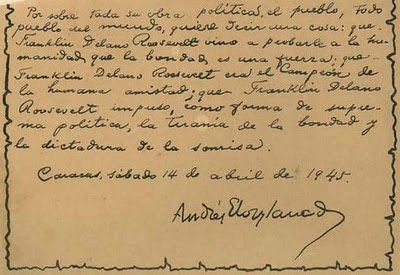 Por sobre toda su obra política, el pueblo, todo
pueblo del mundo, quiere decir una cosa: que
Franklin Delano Roosevelt vino a probarle a la hu-
manidad que la bondad es una fuerza; que
Franklin Delano Roosevelt era el Campeón de
la humana amistad; que Franklin Delano
Roosevelt impuso, como forma de supre-
ma política, la tiranía de la bondad y
la dictadura de la sonrisa.
Caracas, sábado 14 de abril de 1945.
Andrés Eloy Blanco